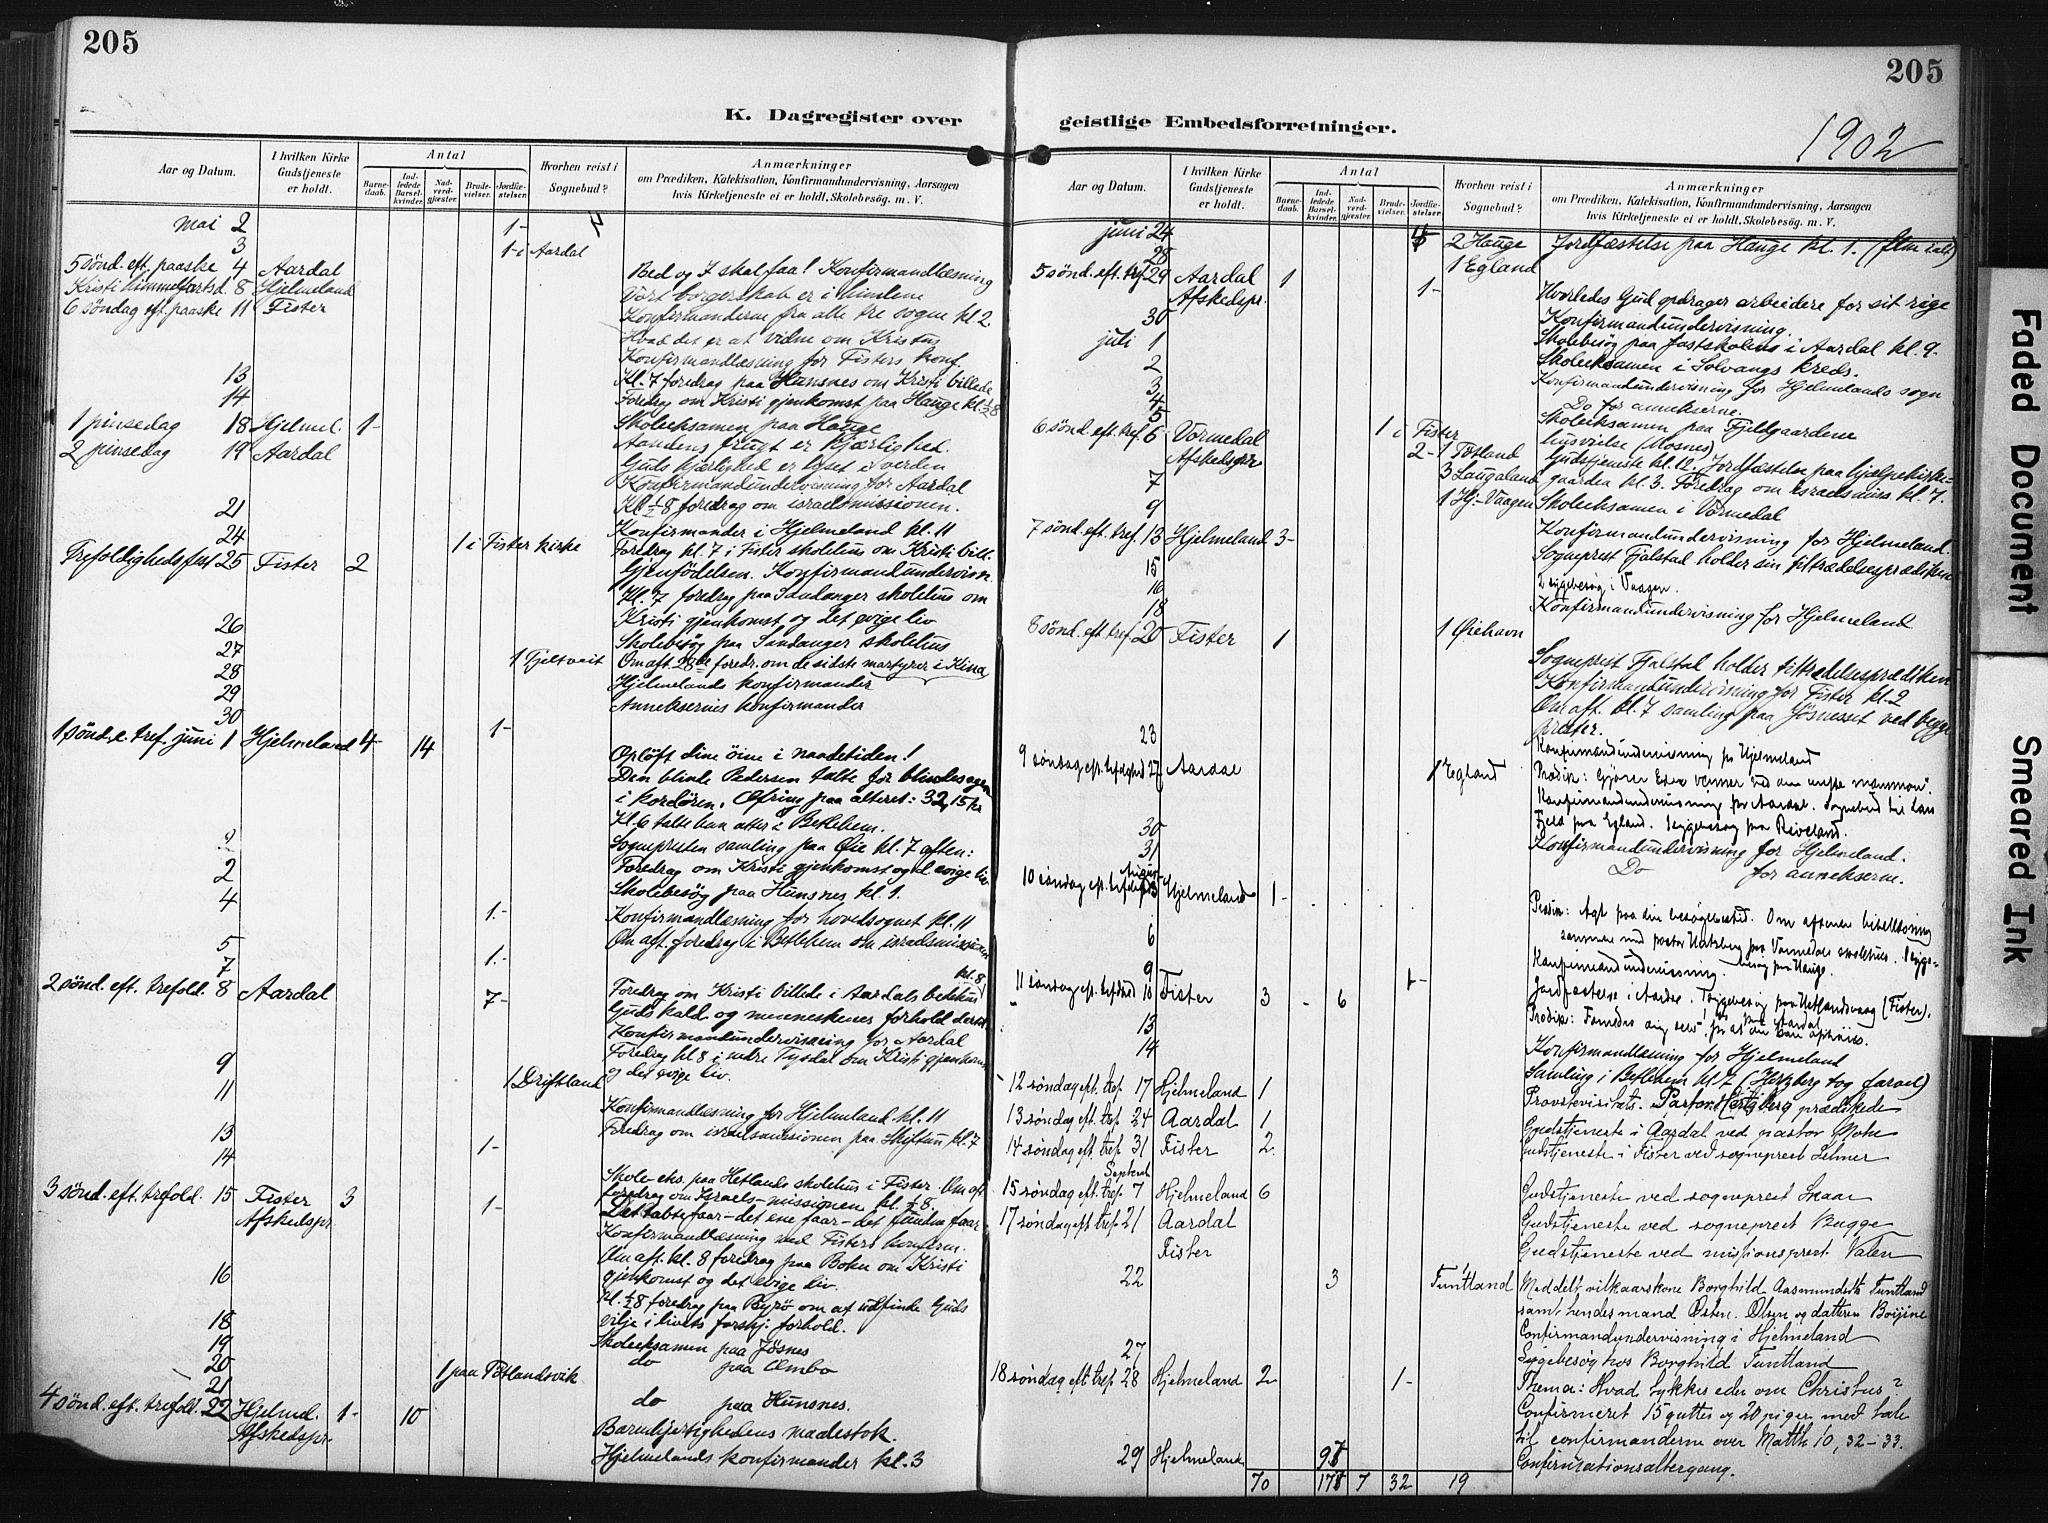 205
K. Dagregister over
Aar og Datum.
I hvilken Kirke Gudstjeneste er holdt.
Antal
Barnedaab.
Indledede Barselkvinder.
Nadverdgjæster.
Brudevielser.
Jordfæstelser.
Hvorhen reist i Sognebud?
Anmærkninger
om Prædiken, Katekisation, Konfirmandundervisning, Aarsagen
hvis Kirketjeneste ei er holdt, Skolebesøg. m. V.
Mai 2 1-
3 1- i Aardal
5 sønd. eft. paaske 4 Aardal
Bed og I skal faa! Konfirmandlæsning
Kristi himmelfartsd. 8 Hjelmeland
Vort borgerskab er i himlene
6 søndag eft. paaske 11 Fister
Konfirmanderne fra alle tre sogne kl. 2.
Hvad det er at vidne om Kristus
Konfirmandlæsning for Fisters konf.
13 Kl. 7 foredrag paa Hansnes om Kristi billede
14 Foredrag om Kristi gjenkomst paa Hauge kl. ½8
Skoleeksamen paa Hauge
1 pinsedag 18 Hjelmel. 1-
Aandens frugt er kjærlighed.
2 pinsedag 19 Aardal
Guds kjærlighed er lyset i verden
Konfirmandundervisning for Aardal
Kl. ½8 foredrag om israelsmissionen.
21 Konfirmander i Hjelmeland kl. 11
24 1 i Fister kirke Foredrag kl. 7 i Fister skolehus om Kristi bill.
Trefoldighedsfest 25 Fister 2
Gjenfødelsen. Konfirmandundervisn.
Kl. 7 foredrag paa Sandanger skolehus om
Kristi gjenkomst og det evige liv
26 Skolebesøg paa Sandanger skolehus
27 1 Fjeltveit Om aft. 28de foredr. om de sidste martyrer i Kina
28 Hjelmelands konfirmander
29 Anneksernes konfirmander
30 1-
1 sønd. e. tref. juni 1 Hjelmeland 4- 14
Opløft dine øine i naadetiden!
Den blinde Pedersen talte for blindesagen
i kordøren. Ofring paa alteret: 32,15 kr
Kl. 6 talte han atter i Betlehem.
2 Sognepresten samling paa Øie kl. 7 aften:
Foredrag om Kristi gjenkomst og d. evige liv
2 Skolebesøg paa Hunsnes kl. 1.
4 1.- Konfirmandlæsning for hovedsognet kl. 11
Om aft. foredrag i Betlehem om israelsmissionen
5 1.- kl. 8
7 Foredrag om Kristi billede i Aardals bedehus
2 sønd. eft. trefold. 8 Aardal 7-
Guds kald og menneskenes forhold dertil
Konfirmandundervisning for Aardal
Foredrag kl 8 i nedre Tysdal om Kristi gjenkomst
9 og det evige liv.
11 1 Driftland Konfirmandlæsning for Hjelmeland kl. 11
13 Foredrag om israelsmissionen paa Skiftun kl. 7
14 1-
Skole-eks. paa Hetlands skolehus i Fister. Om aft.
foredrag om Israels-missionen kl. ½8.
3 sønd. eft. trefold. 15 Fister 3 1-
Afskedspr.
Det tabte faar - det ene faar - det fundne faar
Konfirmandlæsning med Fisters konfirm.
Om aft. kl. 8 foredrag paa Boken om Kristi
16 gjenkomst og det evige liv.
Kl. ½8 foredrag paa Byrø om at udfinde Guds
18 vilje i livets forskj. forhold.
19 Skoleeksamen paa Jøsnes
20 1 paa Pøtlandsvik do paa Ombo
21 do paa Hunsnes.
4 sønd. eft. trefold. 22 Hjelmel. 1- 10
Afskedspr.
Barmhjertighedens maalestok.
Hjelmelands konfirmander kl. 3
205
geistlige Embedsforretninger.
1902
Aar og Datum.
I hvilken Kirke Gudstjeneste er holdt.
Antal
Barnedaab.
Indledede Barselkvinder.
Nadverdgjæster.
Brudevielser.
Jordfæstelser.
Hvorhen reist i Sognebud?
Anmærkninger
om Prædiken, Katekisation, Konfirmandundervisning, Aarsagen
hvis Kirketjeneste ei er holdt, Skolebesøg. m. V.
juni 24 2 Hauge Jordfæstelse paa Hauge kl. 1. (fem ialt)
28 1 Egland
5 sønd. eft. tref. 29 Aardal 1 1-
Afskedspr.
Hvorledes Gud opdrager arbeidere for sit rige
30 Konfirmandundervisning.
juli 1 Skolebesøg paa fastskolens i Aardal kl. 9.
2 Skoleeksamen i Solvangs kreds.
3 Konfirmandundervisning for Hjelmelands sogn
4 Do for annekserne.
5 1 i Fister Skoleeksamen paa Fjellgaardene
6 sønd. eft. tref. 6 Vormedal 2- 1 Tøtland husvielse (Mosnes)
Afskedspr
Gudstjeneste kl. 12. Jordfæstelse paa hjælpekirke-
7 3 Laugaland gaarden kl. 3. Foredrag om israelsmiss. kl. 7.
9 1 Hj.-Vaagen Skoleeksamen i Vormedal
7 sønd. eft. tref. 13 Hjelmeland 3-
Konfirmandundervisning for Hjelmeland.
Sogneprest Fjalstal holder sin tiltrædelsesprædiken
15 2 sygebesøg i Vaagen.
16 Konfirmandundervisning for Hjelmeland
18
8 sønd. eft. tref. 20 Fister 1 1 Øiehavn
Sogneprest Fjalstal holder tiltrædelsesprædiken
Konfirmandundervisning for Fister kl. 2
Om aft. kl. 7 samling paa Jøsnesset ved begge
prester.
23 Konfirmandundervisning for Hjelmeland
9 søndag eft. trefoldighed 27 Aardal 1 Egland
Prædik: Gjører Eder venner ved den urette mammon".
Konfirmandundervisning for Aardal. Sognebud til Lars
Fjeld paa Egland. Sygebesøg paa Riveland.
30 Konfirmandundervisning for Hjelmeland.
31 Do for annekserne.
10 søndag eft. trefoldighed August 3 Hjelmeland 1-
Prædik: Agt paa din besøgelsestid. Om aftenen bibellæsning
sammen med pastor Hertzberg paa Vormedals skolehus. 1 syge-
6 Konfirmandundervisning. besøg paa Hauge.
9 1- Jordfæstelse i Aardal. 1 sygebesøg paa Hetlandsvaag (Fister).
11 søndag eft. trefold 10 Fister 3 - 6
Prædik: Fornedre dig selv, for at du kan ophøies.
13 Konfirmandlæsning for Hjelmeland
14 Samling i Betlehem kl. 7 (Hertzberg tog farvel)
12 søndag eft. tref. 17 Hjelmeland 1 Provstevisitats. Pastor Hertzberg prædikede
13 søndag eft. tref. 24 Aardal 1 Gudstjeneste i Aardal ved pastor Mohn
14 søndag eft. tref. 31 Fister 2. Gudstjeneste i Fister ved sogneprestSelmer
Septemb
15 søndag eft. tref. 7 Hjelmeland 6 Gudstjeneste ved sogneprest Skaar
17 søndag eft. tref. 21 Aardal Gudstjeneste ved sogneprest Bugge
Fister Gudstjeneste ved missionsprest Valen
22 3 Funtland Meddelt vilkaarskone Borghild Aasmundsdtr Tuntland
samt hendes mand Østen Olsen og datteren
Confirmandundervisning i Hjelmeland
27 Sygebesøg hos Borghild Tuntland
18 søndag eft tref. 28 Hjelmeland 2 1- Thema: Hvad tykkes eder om Christus?
Confirmeret 15 gutter og 20 piger med tale
til confirmanderne over Matth 10, 32-33.
29 Hjelmeland 97 Confirmationsaltergang.
70 178 7 32 19
Faded Document
Smeared Ink